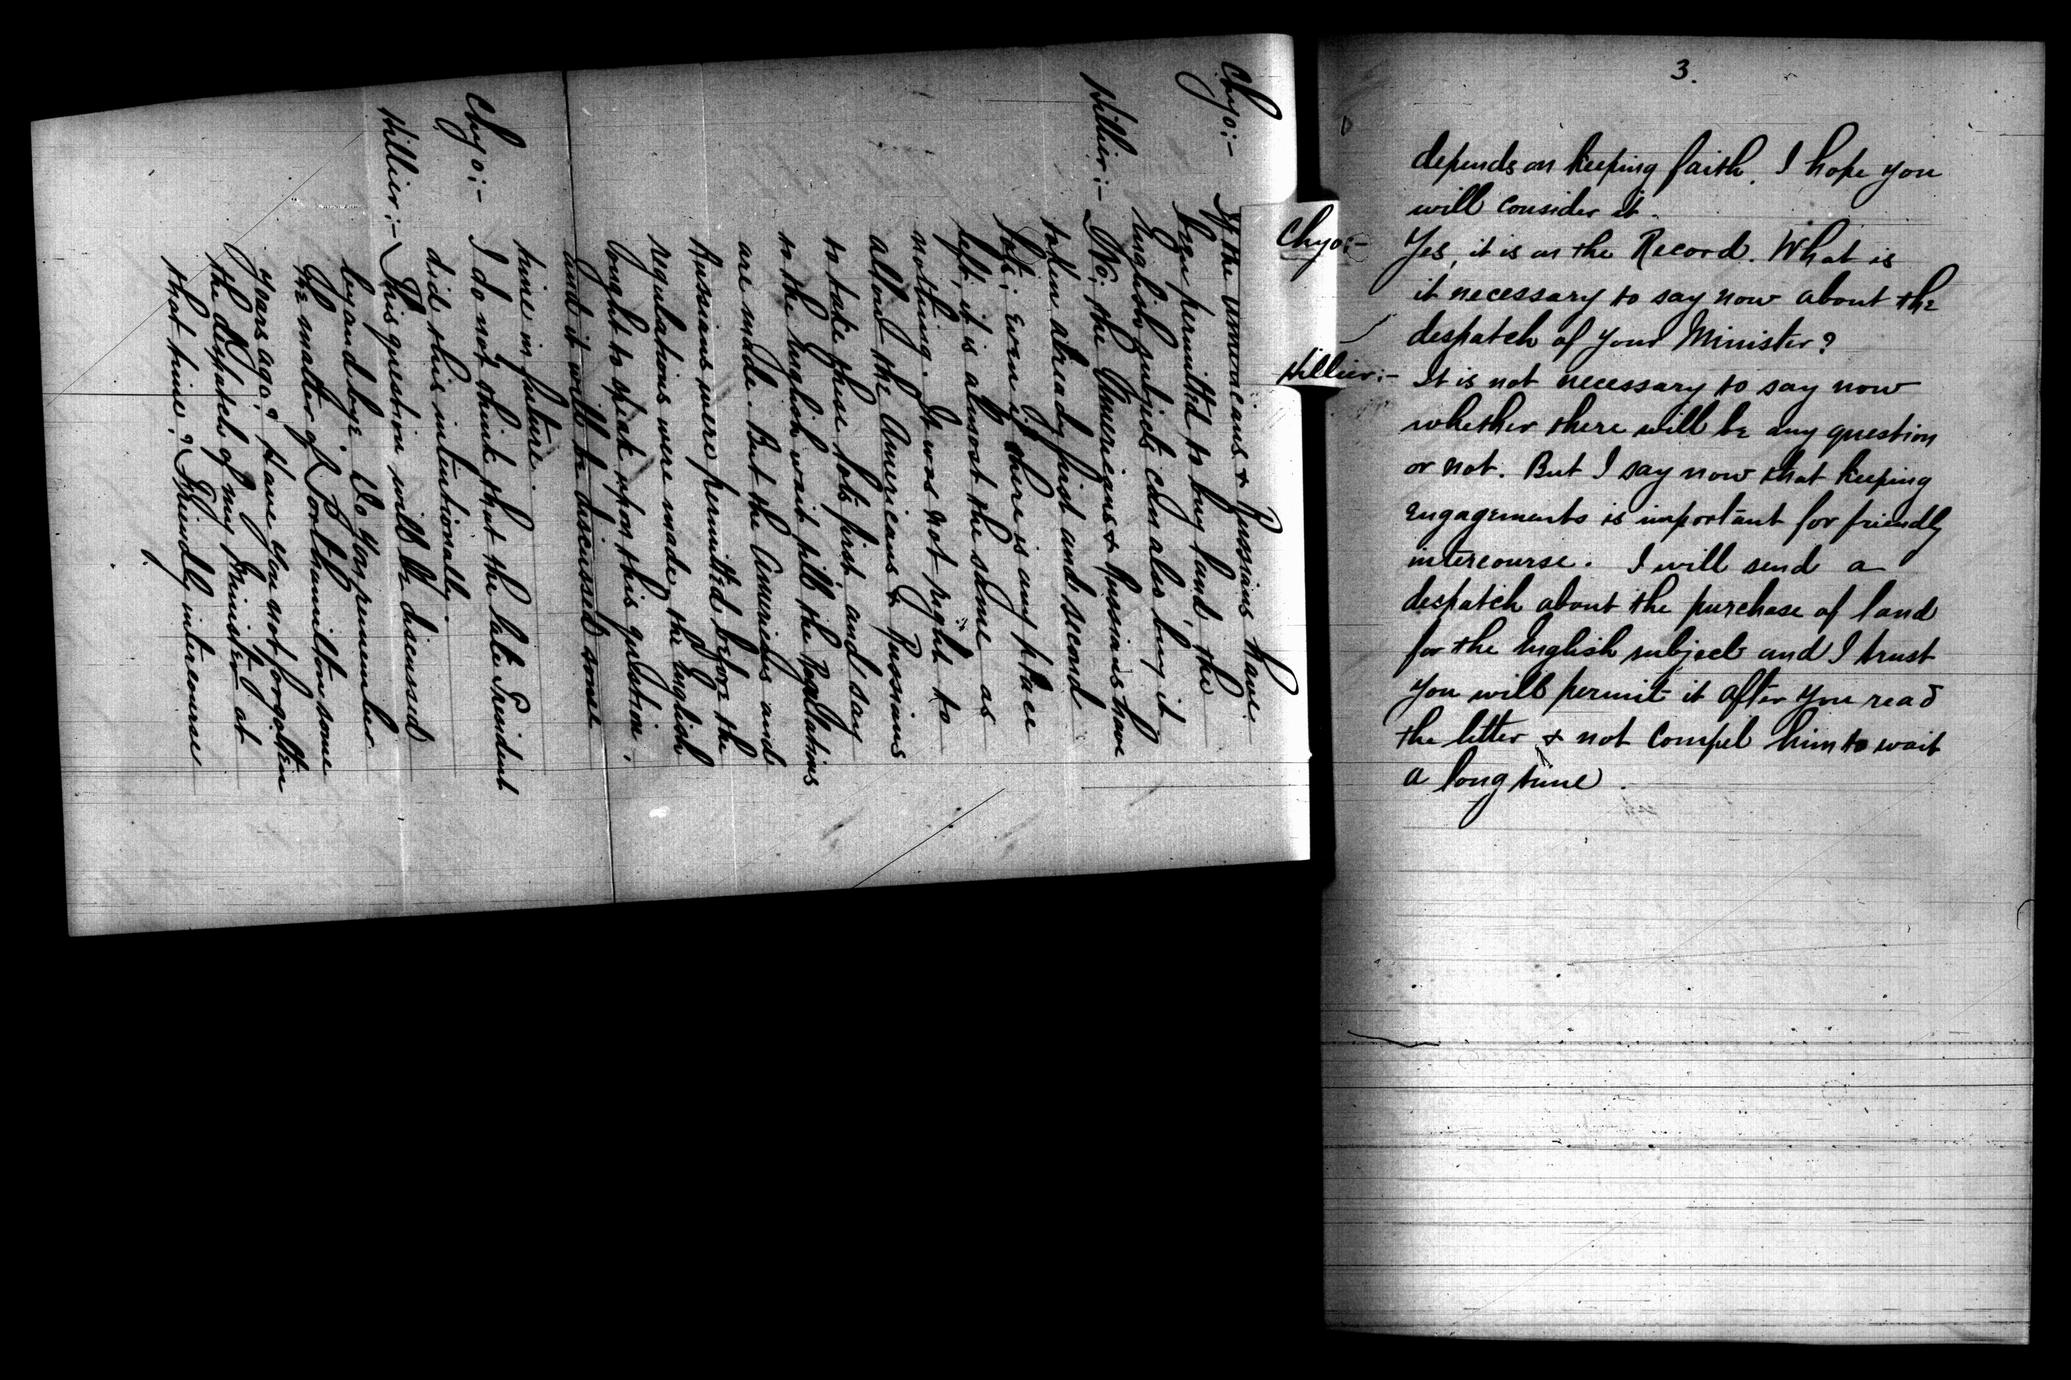 Chyo:- If the Americans & Russians have
been permitted to buy land, the
English subject can also buy it.
Hillier:- No; the Americans & Russians have
taken already first and second
lots; even if there is any place
left, it is almost the same as
nothing. It was not right to
allow the Americans & Russians
to take those lots first and say
to the English wait till the Regulations
are made. But the Americans and
Russians were permitted before the
regulations were made, the English
ought to speak upon this question,
and it will be discussed some
time in future.
Chyo:- I do not think that the late President
did this intentionally.
Hillier:- This question will be discussed
by and bye. Do you remember
the matter of Port Hamilton some
years ago? Have you not forgotten
the dispatch of my Minister at
that time? Friendly intercourse
3.
depends on keeping faith. I hope you
will consider it.
Chyo:- Yes, it is on the Record. What is
it necessary to say now about the
despatch of your Minister?
Hillier:- It is not necessary to say now
whether there will be any question
or not. But I say now that keeping
engagements is important for friendly
intercourse. I will send a
despatch about the purchase of land
for the English subject and I trust
you will permit it after you read
the letter & not compel him to wait
a long time.